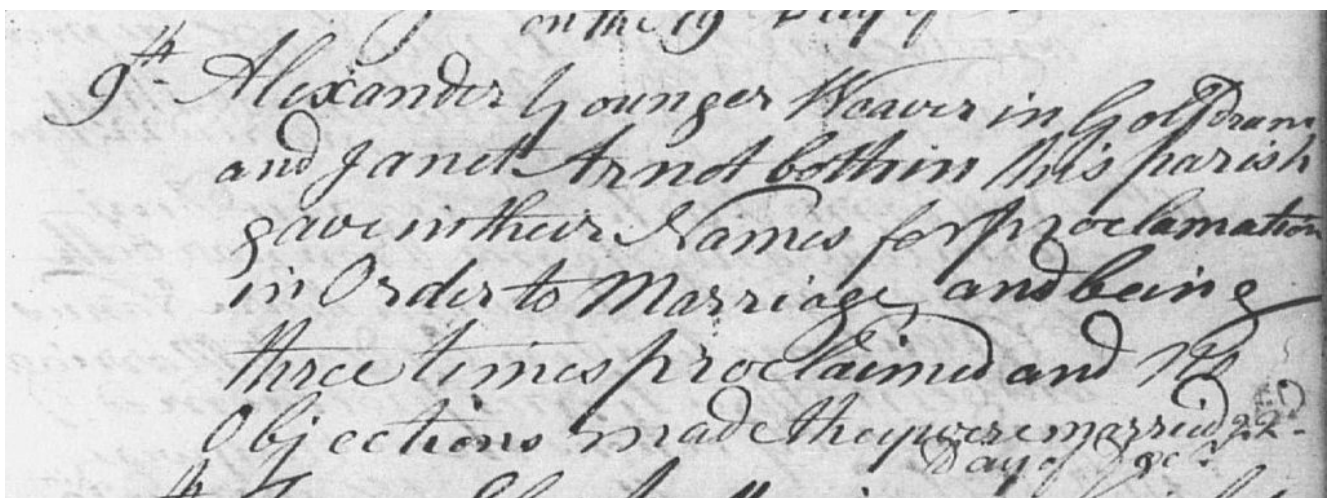 on the 19 Day of
9th Alexander Younger Weaver in Golfdrum
and Janet Arnot both in this parish
gave in their Names for proclamation
in Order to Marriage, and being
three times proclaimed and no
Objections made they were married 22d
Day of Decr